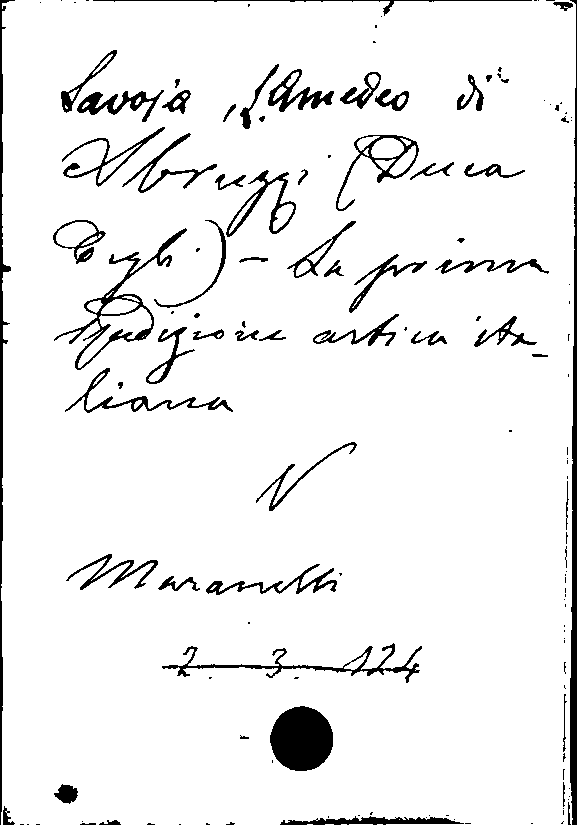 Savoja, L. Amedeo di
Abruzzi (Duca
Degli) - La prima
Spedizione artica ita-
liana
V
Maranelli
2. 3. 124